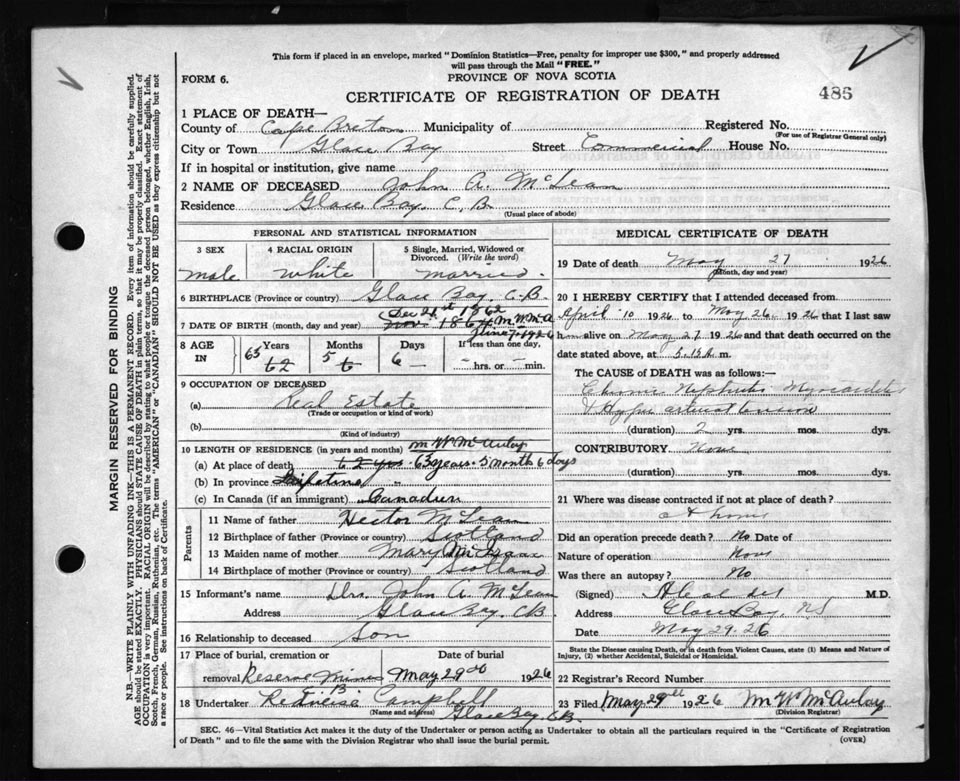 This form if placed in an envelope, marked "Dominion Statistics—Free, penalty for improper use $300," and properly addressed
will pass through the Mail "FREE."
FORM 6.
PROVINCE OF NOVA SCOTIA
CERTIFICATE OF REGISTRATION OF DEATH
486
1 PLACE OF DEATH—
County of Cape Breton Municipality of Registered No.
(For use of Registrar General only)
City or Town Glace Bay Street Commercial House No.
If in hospital or institution, give name
2 NAME OF DECEASED John A. McLean
Residence Glace Bay C.B.
(Usual place of abode)
PERSONAL AND STATISTICAL INFORMATION
3 SEX
male
4 RACIAL ORIGIN
white
5 Single, Married, Widowed or Divorced. (Write the word)
married.
6 BIRTHPLACE (Province or country) Glace Bay. C.B.
Dec 21st 1862
7 DATE OF BIRTH (month, day and year) Nov. 1864 M.W.McA
June 7-1926
8 AGE IN
Years 63 62
Months 5 6
Days 6
If less than one day,
— hrs. or — min.
9 OCCUPATION OF DECEASED
(a) Real Estate
(Trade or occupation or kind of work)
(b)
(Kind of industry)
10 LENGTH OF RESIDENCE (in years and months) M W McAulay
(a) At place of death 62 yrs. 63 years. 5 month 6 days
(b) In province Lifetime "
(c) In Canada (if an immigrant) Canadien
Parents
11 Name of father Hector McLean
12 Birthplace of father (Province or country) Scotland
13 Maiden name of mother Mary McIsaac
14 Birthplace of mother (Province or country) Scotland
15 Informant's name Drs. John A. McLean
Address Glace Bay. CB
16 Relationship to deceased Son
17 Place of burial, cremation or removal Reserve Mines C.B.
Date of burial
May 29 1926
18 Undertaker Campbell
(Name and address) Glace Bay. CB.
MEDICAL CERTIFICATE OF DEATH
19 Date of death May 27 1926
(Month, day and year)
20 I HEREBY CERTIFY that I attended deceased from
April 10 1926 to May 26 1926 that I last saw
him alive on May 27 1926 and that death occurred on the
date stated above, at m.
The CAUSE of DEATH was as follows:—
Chronic Nephritis Myocarditis
& Hyper arterial tension
(duration) 2 yrs. mos. dys.
CONTRIBUTORY None
(duration) yrs. mos. dys.
21 Where was disease contracted if not at place of death?
at home
Did an operation precede death? No Date of
Nature of operation None
Was there an autopsy? No
(Signed) M.D.
Address Glace Bay, NS
Date May 29. 26
State the Disease causing Death, or in death from Violent Causes, state (1) Means and Nature of
Injury, (2) whether Accidental, Suicidal or Homicidal.
22 Registrar's Record Number
23 Filed May 29th 1926 M W McAulay
(Division Registrar)
SEC. 46—Vital Statistics Act makes it the duty of the Undertaker or person acting as Undertaker to obtain all the particulars required in the "Certificate of Registration
of Death" and to file the same with the Division Registrar who shall issue the burial permit.
(OVER)
MARGIN RESERVED FOR BINDING
N.B.—WRITE PLAINLY WITH UNFADING INK—THIS IS A PERMANENT RECORD. Every item of information should be carefully supplied.
AGE should be stated EXACTLY. PHYSICIANS should STATE CAUSE OF DEATH in plain terms, so that it may be properly classified. Exact statement of
OCCUPATION is very important. RACIAL ORIGIN will be described by stating to what people or tongue the deceased person belonged, whether English, Irish,
Scotch, French, German, Russian, Ruthenian, etc. The terms "AMERICAN" or "CANADIAN" SHOULD NOT BE USED as they express citizenship but not
a race or people. See instructions on back of Certificate.